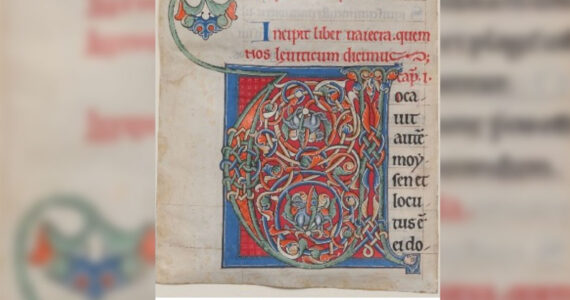 Incipit liber uaiecra. quem
nos leuiticum dicimus
cap̄. i.
Voca
uit
autē
moy
sen et
locu
tus ē
ei do